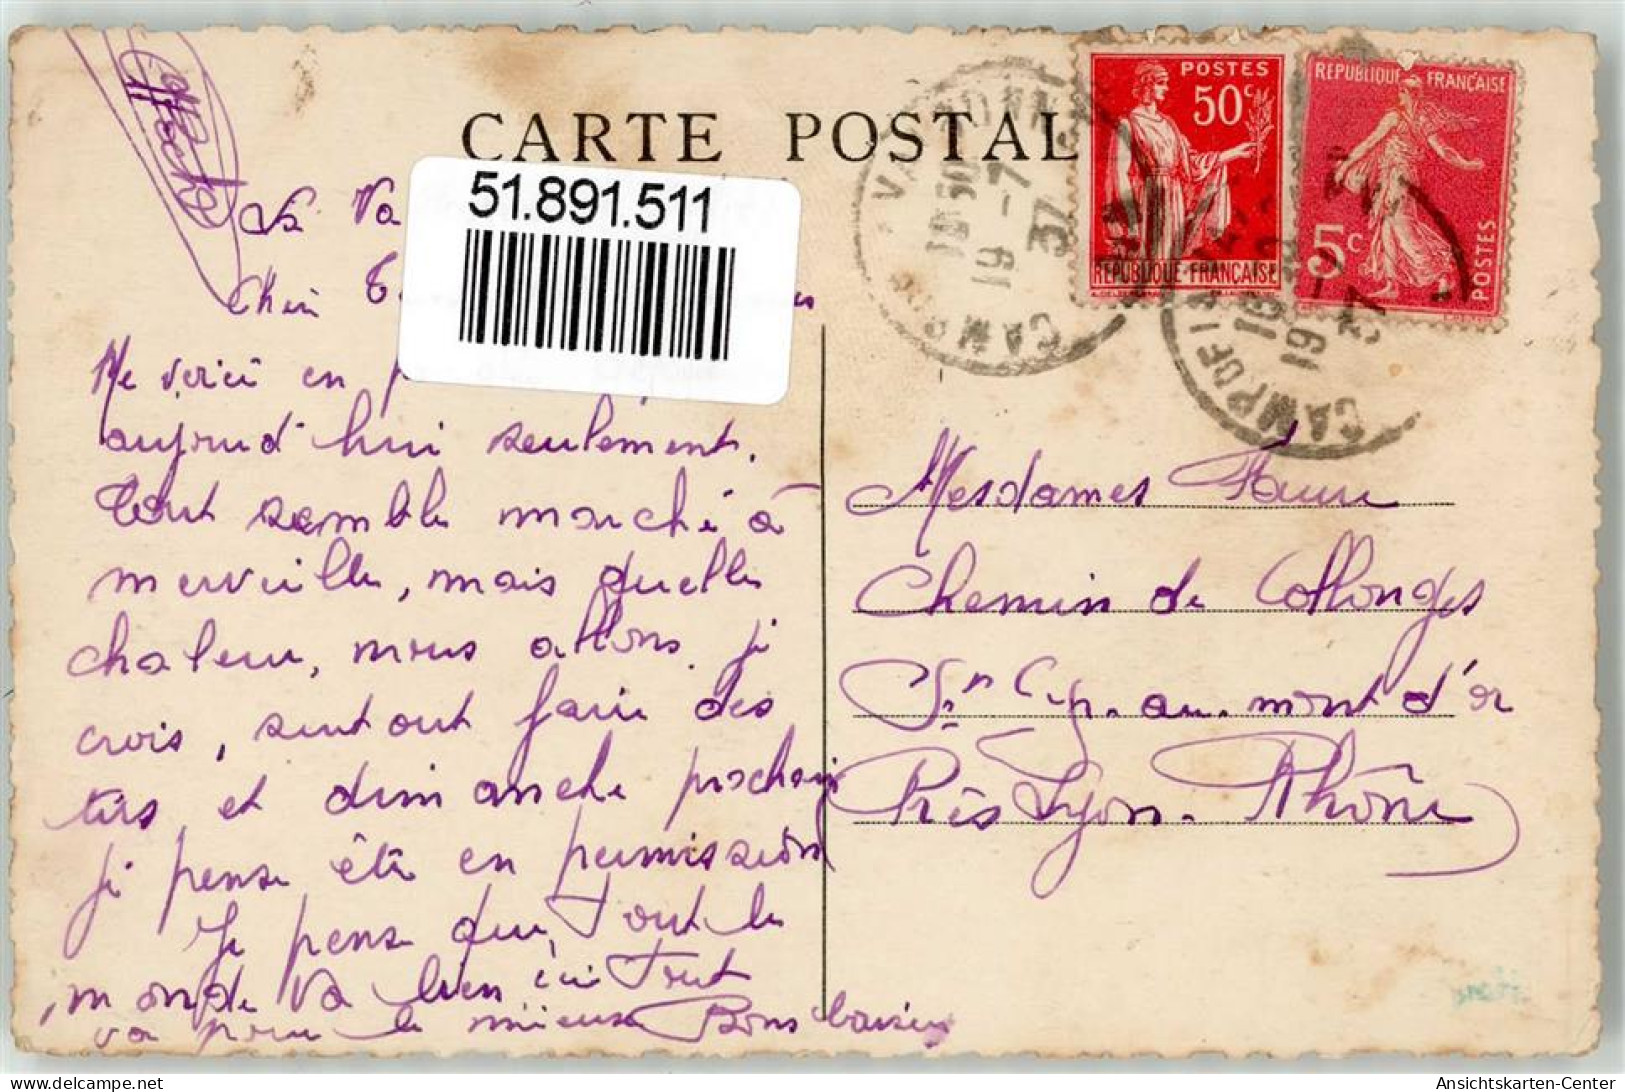 CARTE POSTAL
51.891.511
POSTES
50c
REPUBLIQUE FRANÇAISE
REPUBLIQUE FRANÇAISE
5c
POSTES
18 50
19 -7
37
CAMP
CAMP DE LA
19 -7
37
La Va
Me voici en
aujourd'hui seulement.
tout semble marché à
merveille, mais quelle
chaleur, nous allons, je
crois, surtout faire des
tirs et dimanche prochain
je pense être en permission
Je pense que, tout le
monde va bien ici tout
va pour le mieux Bons baisers
Mesdames Faure
Chemin de Collonges
St Cyr. au. mont d'or
Près Lyon. Rhône
Ansichtskarten-Center